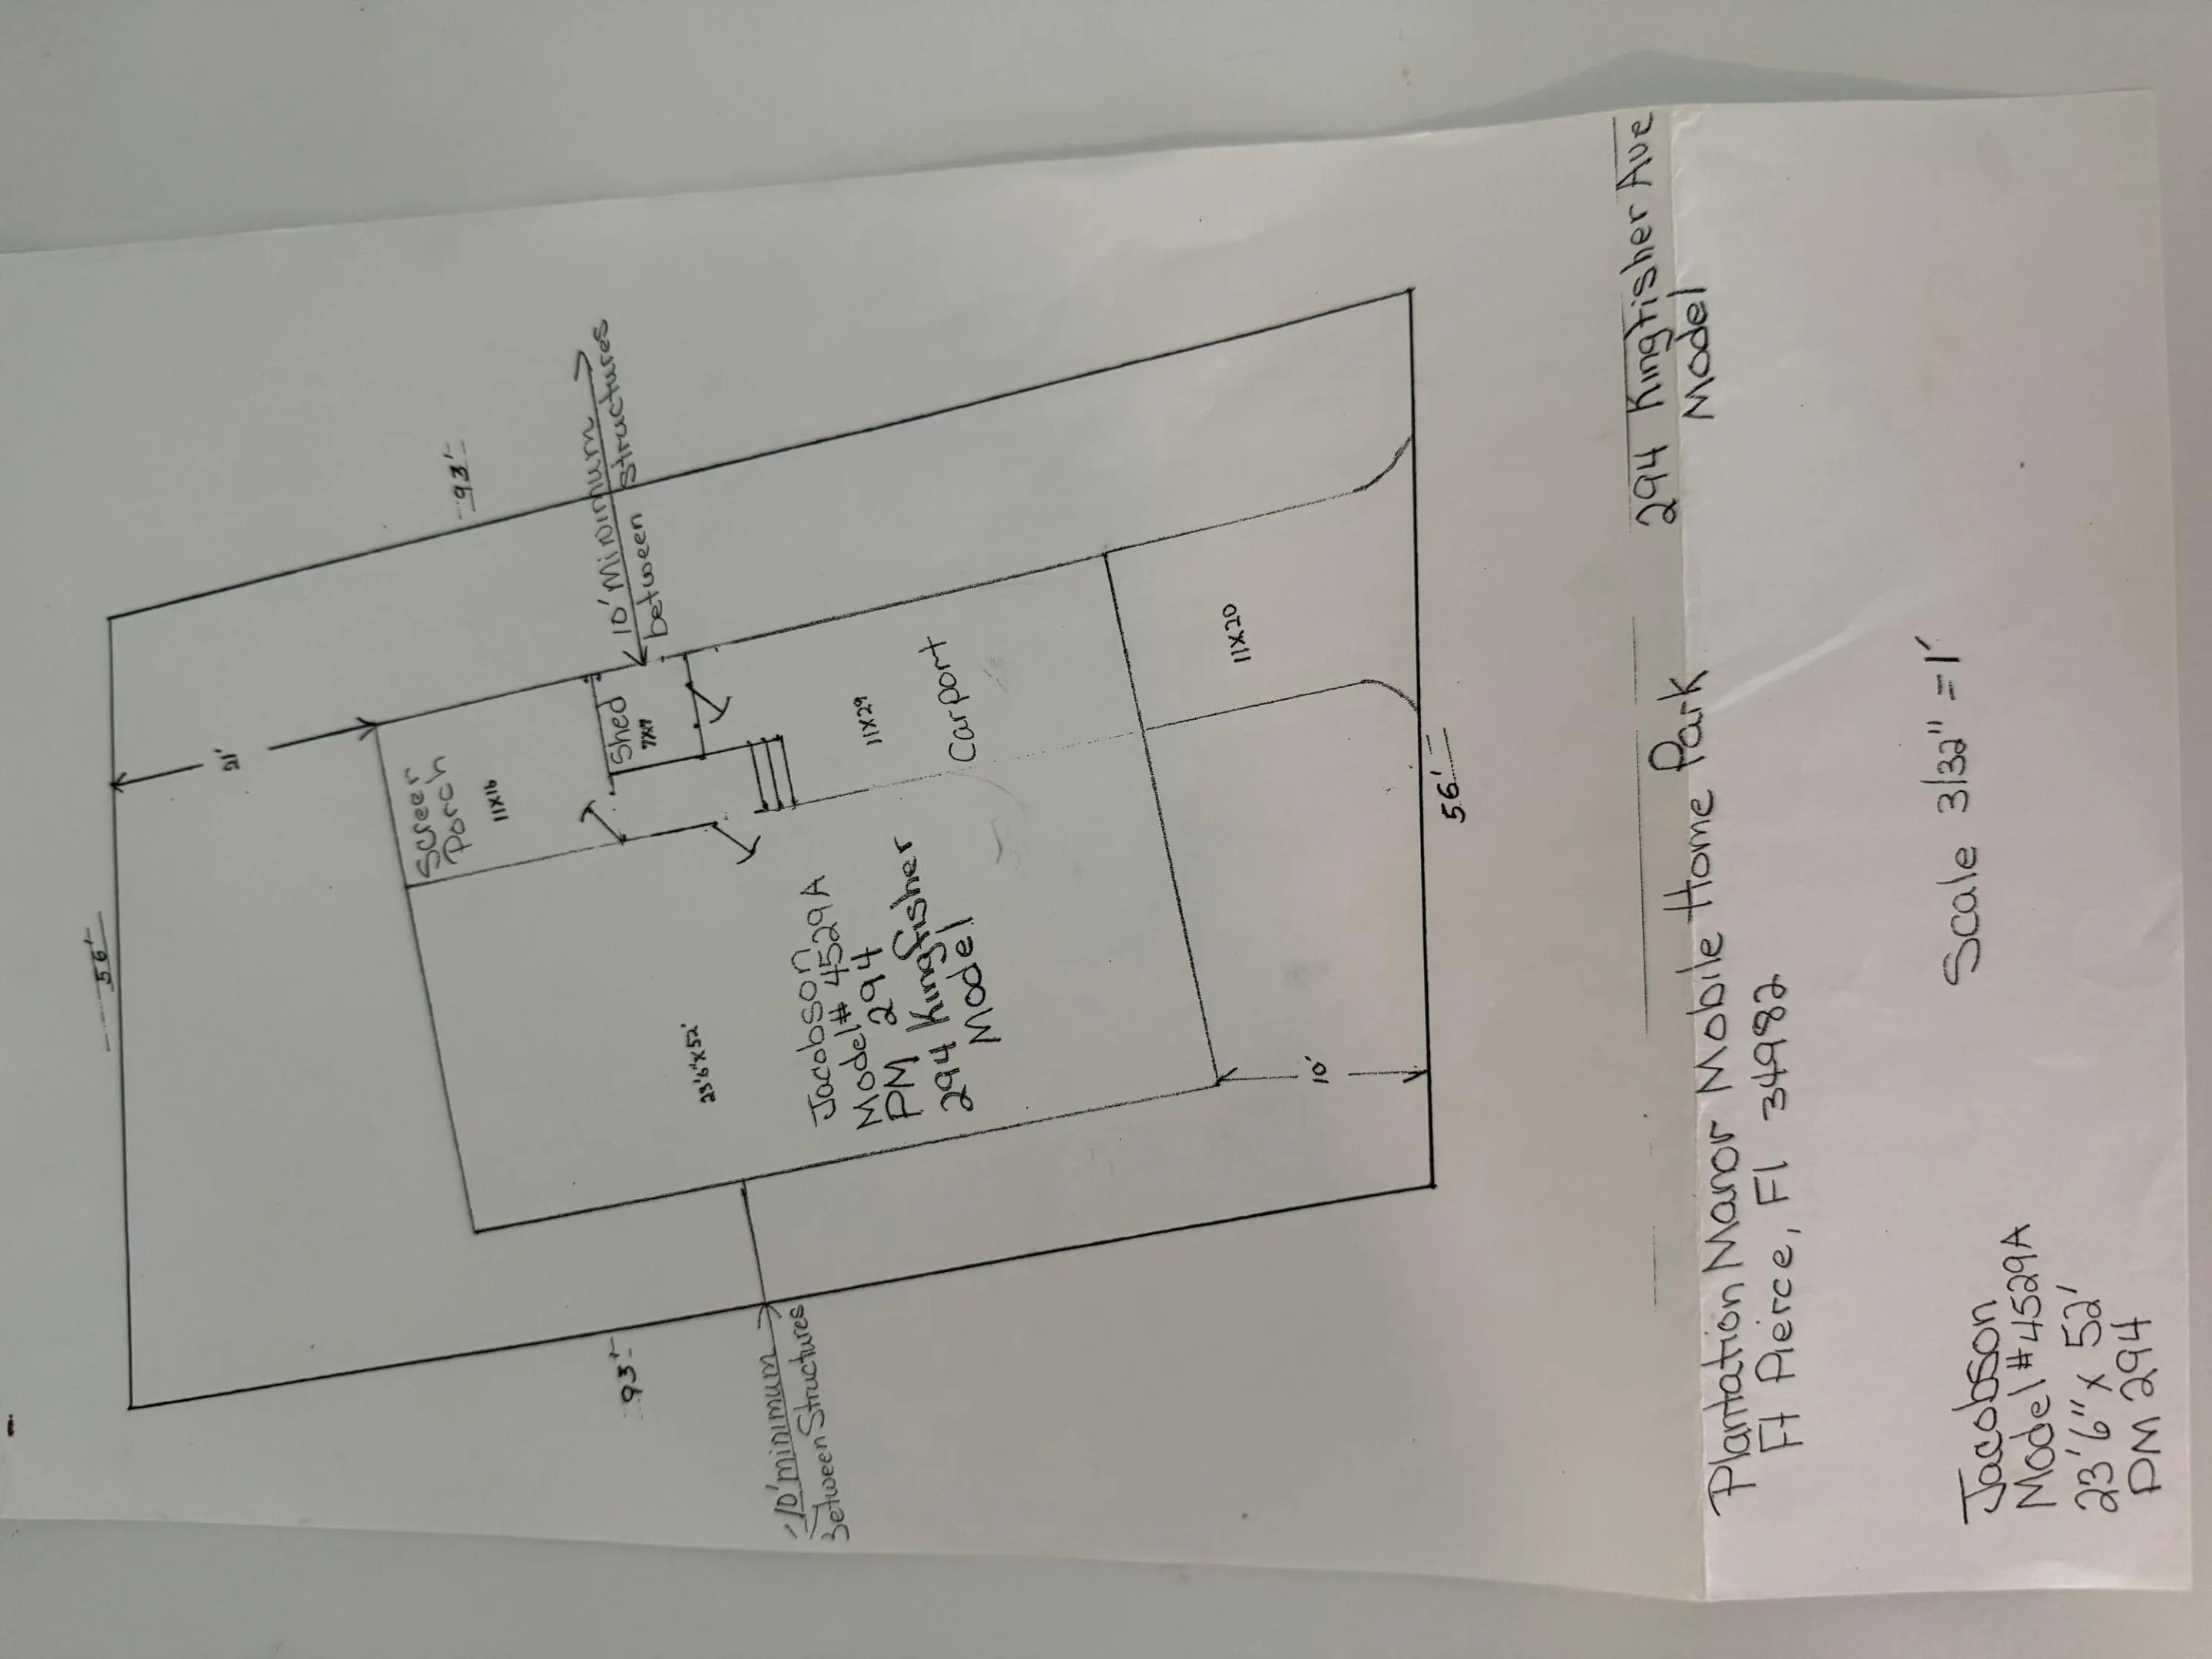 56'
93'
21'
10' Minimum
between Structures
Screen
Porch
11X16
Shed
7X7
11X29
Carport
11X20
23'6"X52'
Jacobson
Model# 4529A
PM 294
294 Kingfisher
Model
10'
93'
10' minimum
Between Structures
56'
294 Kingfisher Ave
Model
Plantation Manor Mobile Home Park
Ft Pierce, Fl 34982
Scale 3/32" = 1'
Jacobson
Model #4529A
23'6" x 52'
PM 294